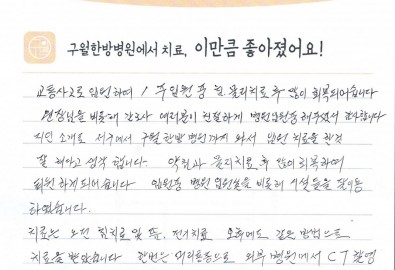 구월한방병원에서 치료, 이만큼 좋아졌어요!
교통사고로 입원하여 1주일전 중 물리치료 후 많이 회복되어습니다
원장님을 비롯해 간호사 여러분이 친절하게 병원입원을 해주셔서 감사합니다
지인 소개로 서구에서 구월 한방 병원까지 와서 입원 치료를 한것
잘 했다고 생각 합니다. 약침과 물리치료 후 많이 회복하여
퇴원 하게 되어습니다 입원중 병원 입원실을 비롯해 시설들을
하였습니다.
치료는 오전 침치료 및 뜸, 전기치료 오후에도 같은 방법으로
치료를 받았습니다 한번은 외부 병원에서 CT 촬영